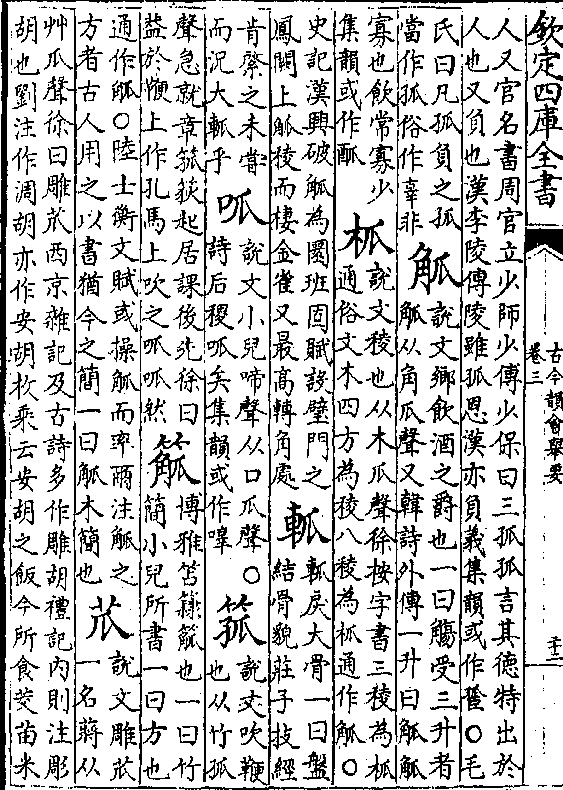 欽定四庫全書
古今韻會舉要
卷三
二十二
人又官名書周官立少師少傅少保曰三孤孤言其德特出於
人也又負也漢李陵傳陵雖孤恩漢亦負義集韻或作○毛
氏曰凡孤負之孤
當作孤俗作辜非
觚
說文鄉飲酒之爵也一曰觴受三升者
觚从角瓜聲又韓詩外傳一升曰觚觚
寡也飲常寡少
集韻或作
柧
說文稜也从木瓜聲徐按字書三稜為柧
通俗文木四方為稜八稜為柧通作觚○
史記漢興破觚為圜班固賦設璧門之
鳳闕上觚稜而棲金雀又最高轉角處
軱
軱戾大骨一曰盤
結骨貌莊子技經
肯綮之未嘗
而況大軱乎
呱
說文小兒啼聲从口瓜聲○
詩后稷呱矣集韻或作嘑
箛
說文吹鞭
也从竹孤
聲急就章箛篍起居課後先徐曰
益於鞭上作孔馬上吹之呱呱然
博雅笘觚也一曰竹
簡小兒所書一曰方也
通作觚○陸士衡文賦或操觚而率爾注觚之
方者古人用之以書猶今之簡一曰觚木簡也
苽
說文雕苽
一名蔣从
艸瓜聲徐曰雕苽西京雜記及古詩多作雕胡禮記内則注彫
胡也劉注作凋胡亦作安胡枚乘云安胡之飯今所食茭苗米